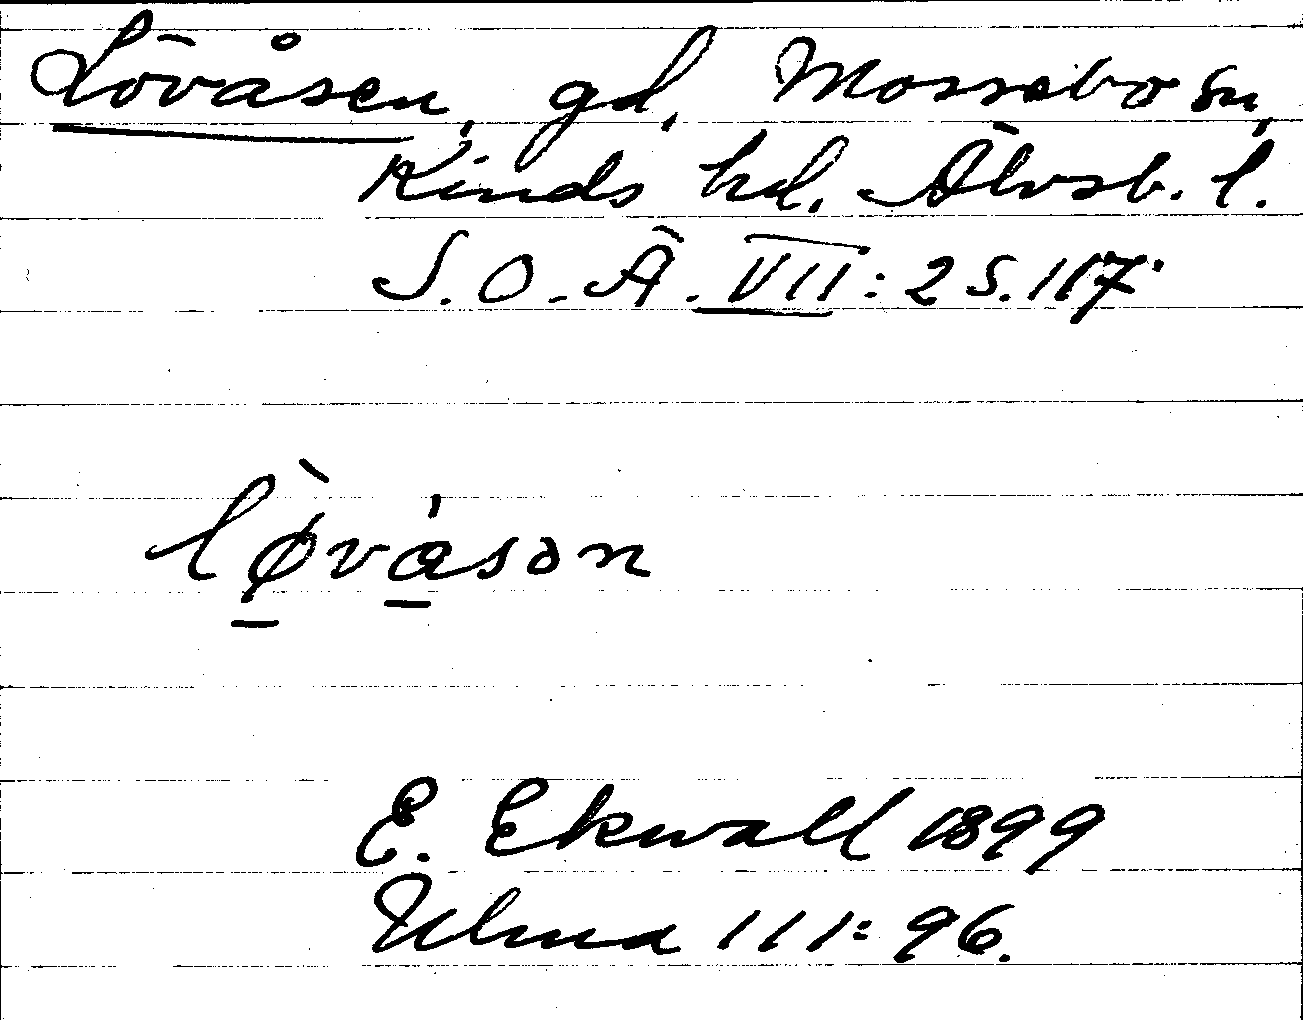 Lövåsen, gd, Mossebo sn,
Kinds hd. Älvsb. l.
S.O.Ä. VII: 2 S. 117.
lø̀va̍sən
E. Ekwall 1899
Ulma 111: 96.